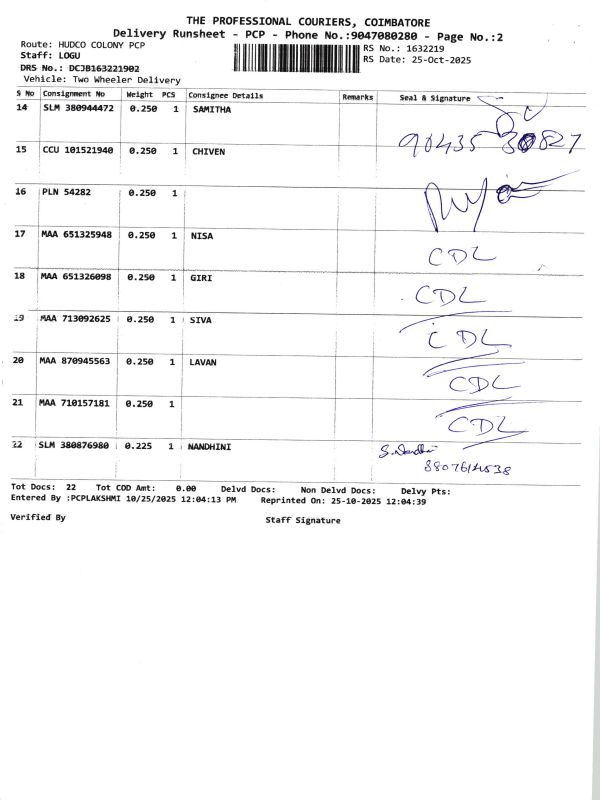 THE PROFESSIONAL COURIERS, COIMBATORE
Delivery Runsheet - PCP - Phone No.:9047080280 - Page No.:2
Route: HUDCO COLONY PCP
RS No.: 1632219
Staff: LOGU
RS Date: 25-Oct-2025
DRS No.: DCJB163221902
Vehicle: Two Wheeler Delivery
S No Consignment No Weight PCS Consignee Details Remarks Seal & Signature
14 SLM 380944472 0.250 1 SAMITHA
90435 30827
15 CCU 101521940 0.250 1 CHIVEN
16 PLN 54282 0.250 1
17 MAA 651325948 0.250 1 NISA CDL
18 MAA 651326098 0.250 1 GIRI CDL
19 MAA 713092625 0.250 1 SIVA CDL
20 MAA 870945563 0.250 1 LAVAN CDL
21 MAA 710157181 0.250 1 CDL
22 SLM 380876980 0.225 1 NANDHINI
8807614538
Tot Docs: 22 Tot COD Amt: 0.00 Delvd Docs: Non Delvd Docs: Delvy Pts:
Entered By :PCPLAKSHMI 10/25/2025 12:04:13 PM Reprinted On: 25-10-2025 12:04:39
Verified By Staff Signature